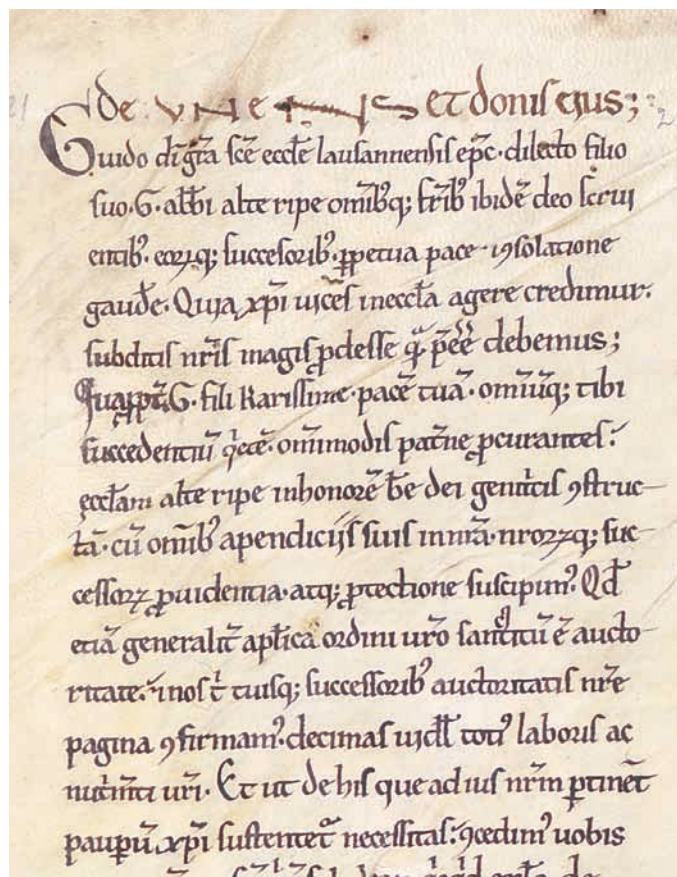 de UNENS et donis ejus;
Guido di gr̄a sc̄e eccl̄e lausannensis ep̄c · dilecto filio
suo · G · abb̄i alte ripe om̄ibꝰq; fr̄ibꝰ ibidē deo serui
entibꝰ · eoꝝq; successoribꝰ · ꝑpetua pace · ꝯsolatione
gaudē · Quia xp̄i uices in eccl̄a agere credimur ·
subditis nr̄is magis ꝓdesse qͣ p̄eē debemus;
Quapͬpt̄ · G · fili karissime · pacē tuā · omīūq; tibi
succedentiū qͥetē · omīmodis pat̄ne ꝓcurantes ·
eccl̄am alte ripe in honorē bē dei genitͥcis ꝯstruc
tā · cū om̄ibꝰ apendiciis suis in nr̄a · nr̄oꝝq; suc
cessoꝝ ꝓuidentia · atq; ꝓtectione suscipimꝰ · Qd̄
etiā generalit̄ apl̄ica ordini ur̄o sancitū ē aucto
ritate · nos t̄ tuisq; successoribꝰ auctoritatis nr̄e
pagina ꝯfirmamꝰ · decimas uidl̄ totiꝰ laboris ac
nutͥmti ur̄i · Et ut de his que ad ius nr̄m ꝑtinēt
pauꝑū xp̄i sustentet̄ necessitas · ꝯcedimꝰ uobis